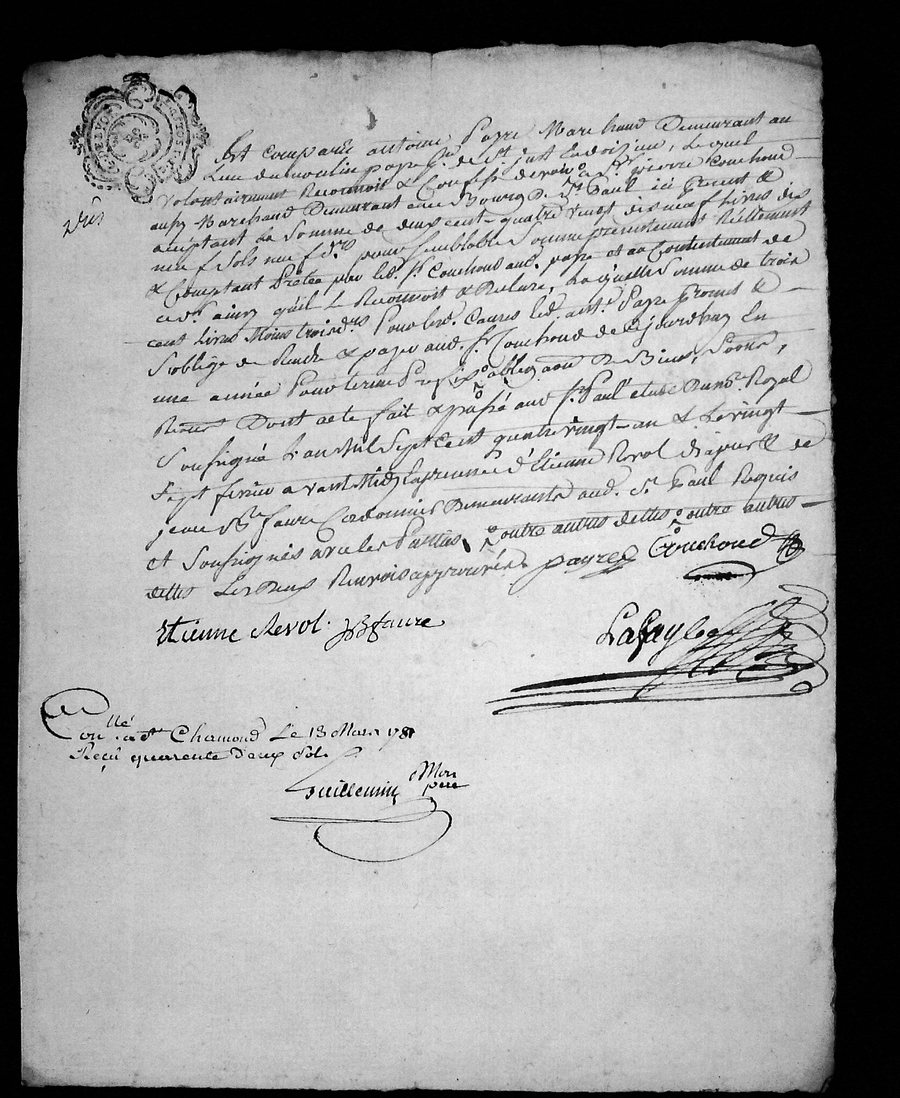 Est comparû antoine Payre Marchand Demeurant au
Lieu du moulin payre psse de St. just Endoizieu, Lequel
volontairement Reconnoit & Confesse devoir a Sr. pierre Couchoud
aussy Marchand Demeurant au Bourg De St. Paul ici présent &
acceptant La Somme de deux cent quatre vingt dix neuf Livres dix
neuf Sols neuf drs. pour semblable Somme présentement Réellement
& Comptant Prêtée par led. Sr. Couchoud aud. payre et au Contentement de
ced. ainsy qu'il Le Reconnoit & Declare, La quelle Somme de trois
cent Livres Moins trois drs. Pour les d. Causes led. ant. Payre Promet &
s'oblige de Rendre & payer aud. Sr. Couchoud de cejourdhuy En
une année Pour terme Prefix obligaon De Biens, Soons,
Renons Dont acte fait & passé aud. St. Paul etude Du nre. Royal
Soussigné L'an Mil Sept Cent quatre vingt-un & Le vingt
Sept fevrier avant Midy En presence d'Etienne Revol & de
jean Bte. faure Cordonnier Demeurants aud. St. Paul Requis
et Soussignés avec les Parties outre autres dettes outre autres
dettes Les deux Renvois approuvés payre Couchoud
Etienne Revol. JB faure
Lafay
Conllé a St. Chamond Le 13 Mars 1781
Reçu quarente Deux Sols
Guillemin Mon père